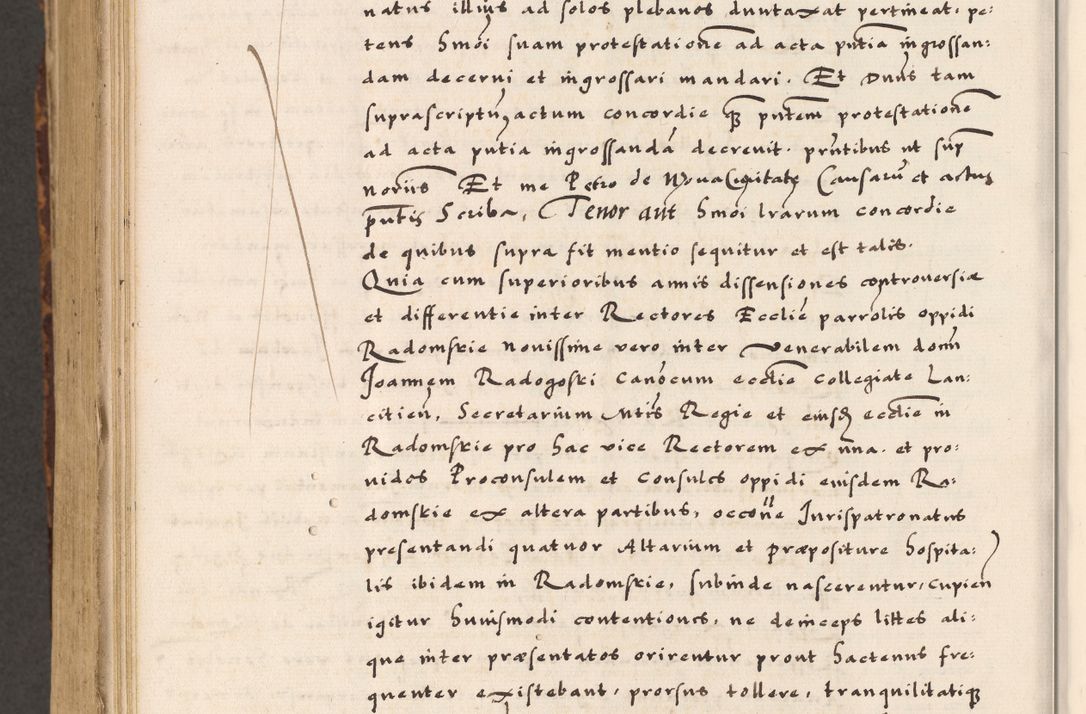 natus illius ad solos plebanos duntaxat pertineat, pe:
tens Hmoi suam protestationē ad acta pntia ingrossan:
dam decerni et ingrossari mandari. Et Dnus tam
suprascriptū actum concordie q̃ pntem protestationē
ad acta pntia ingrossandā decrevit. pntibus ut sup
noriis Et me Petro de Nova Civitate Causarū et actus
pntis Scriba, Tenor aut hmoi lrarum concordie
de quibus supra fit mentio sequitur et est talis.
Quia cum superioribus annis dissensiones controversiæ
et differentie inter Rectores Ecclie parrolis oppidi
Radomskie novissime vero inter venerabilem domn
Joannem Radogoski Canocum ecclie Collegiate Lan:
citien, Secretarium Mtis Regie et eiusd ecclie in
Radomskie pro hac vice Rectorem ex una. et pro:
vidos Proconsulem et Consules oppidi eiusdem Ra:
domskie ex altera partibus, occone Jurispatronatus
presentandi quatuor Altarium et præpositure hospita:
lis ibidem in Radomskie, subinde nascerentur, cupien
igitur huiusmodi contentiones, ne deinceps lites ali:
que inter præsentatos orirentur prout hactenus fre:
quenter existebant, prorsus tollere, tranquilitatiq